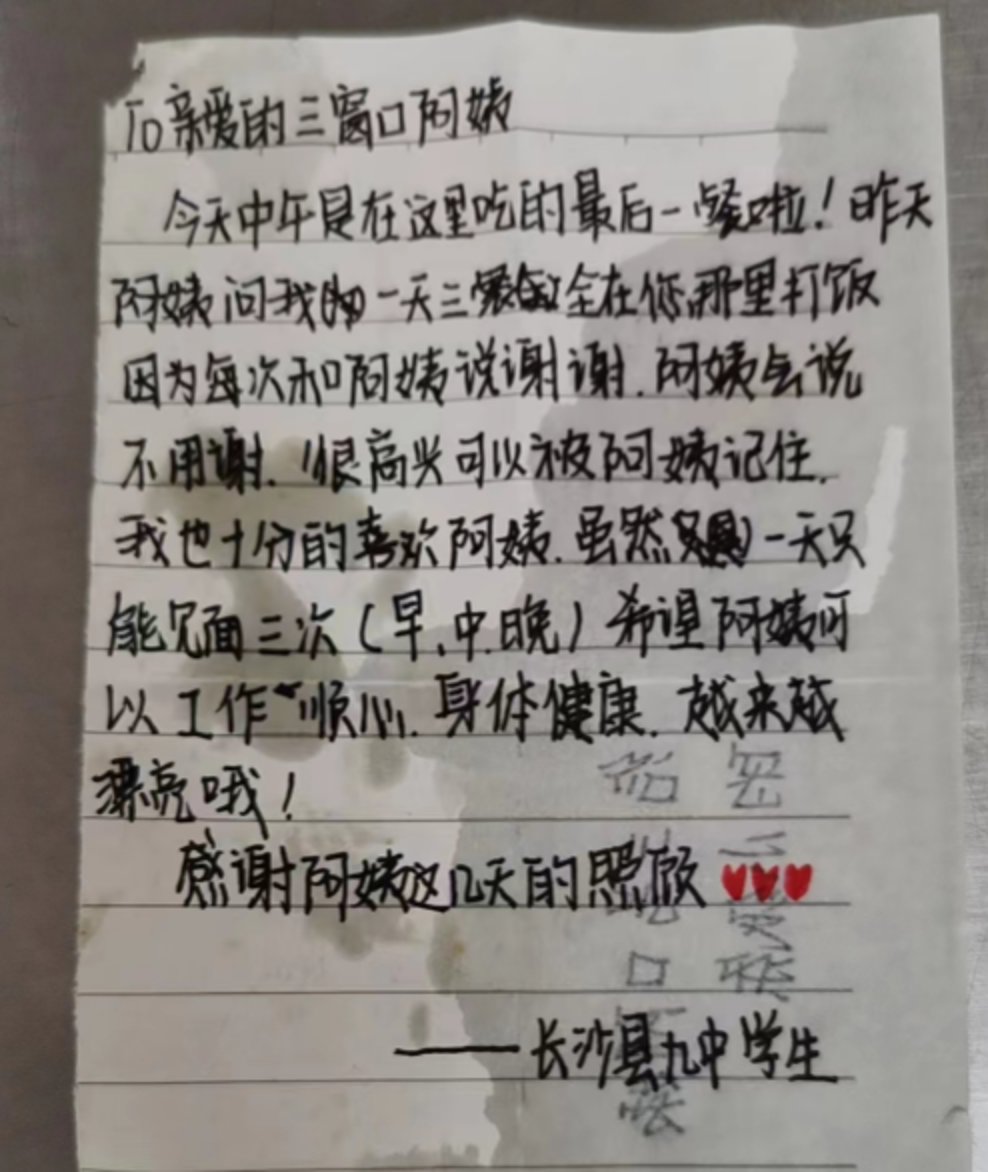 To 亲爱的三窗口阿姨
今天中午是在这里吃的最后一餐啦!昨天
阿姨问我 一天三餐 全在你那里打饭
因为每次和阿姨说谢谢.阿姨会说
不用谢.很高兴可以被阿姨记住.
我也十分的喜欢阿姨.虽然 一天只
能见面三次(早.中.晚)希望阿姨可
以工作顺心.身体健康.越来越
漂亮哦!
感谢阿姨这几天的照顾❤❤❤
——长沙县九中学生